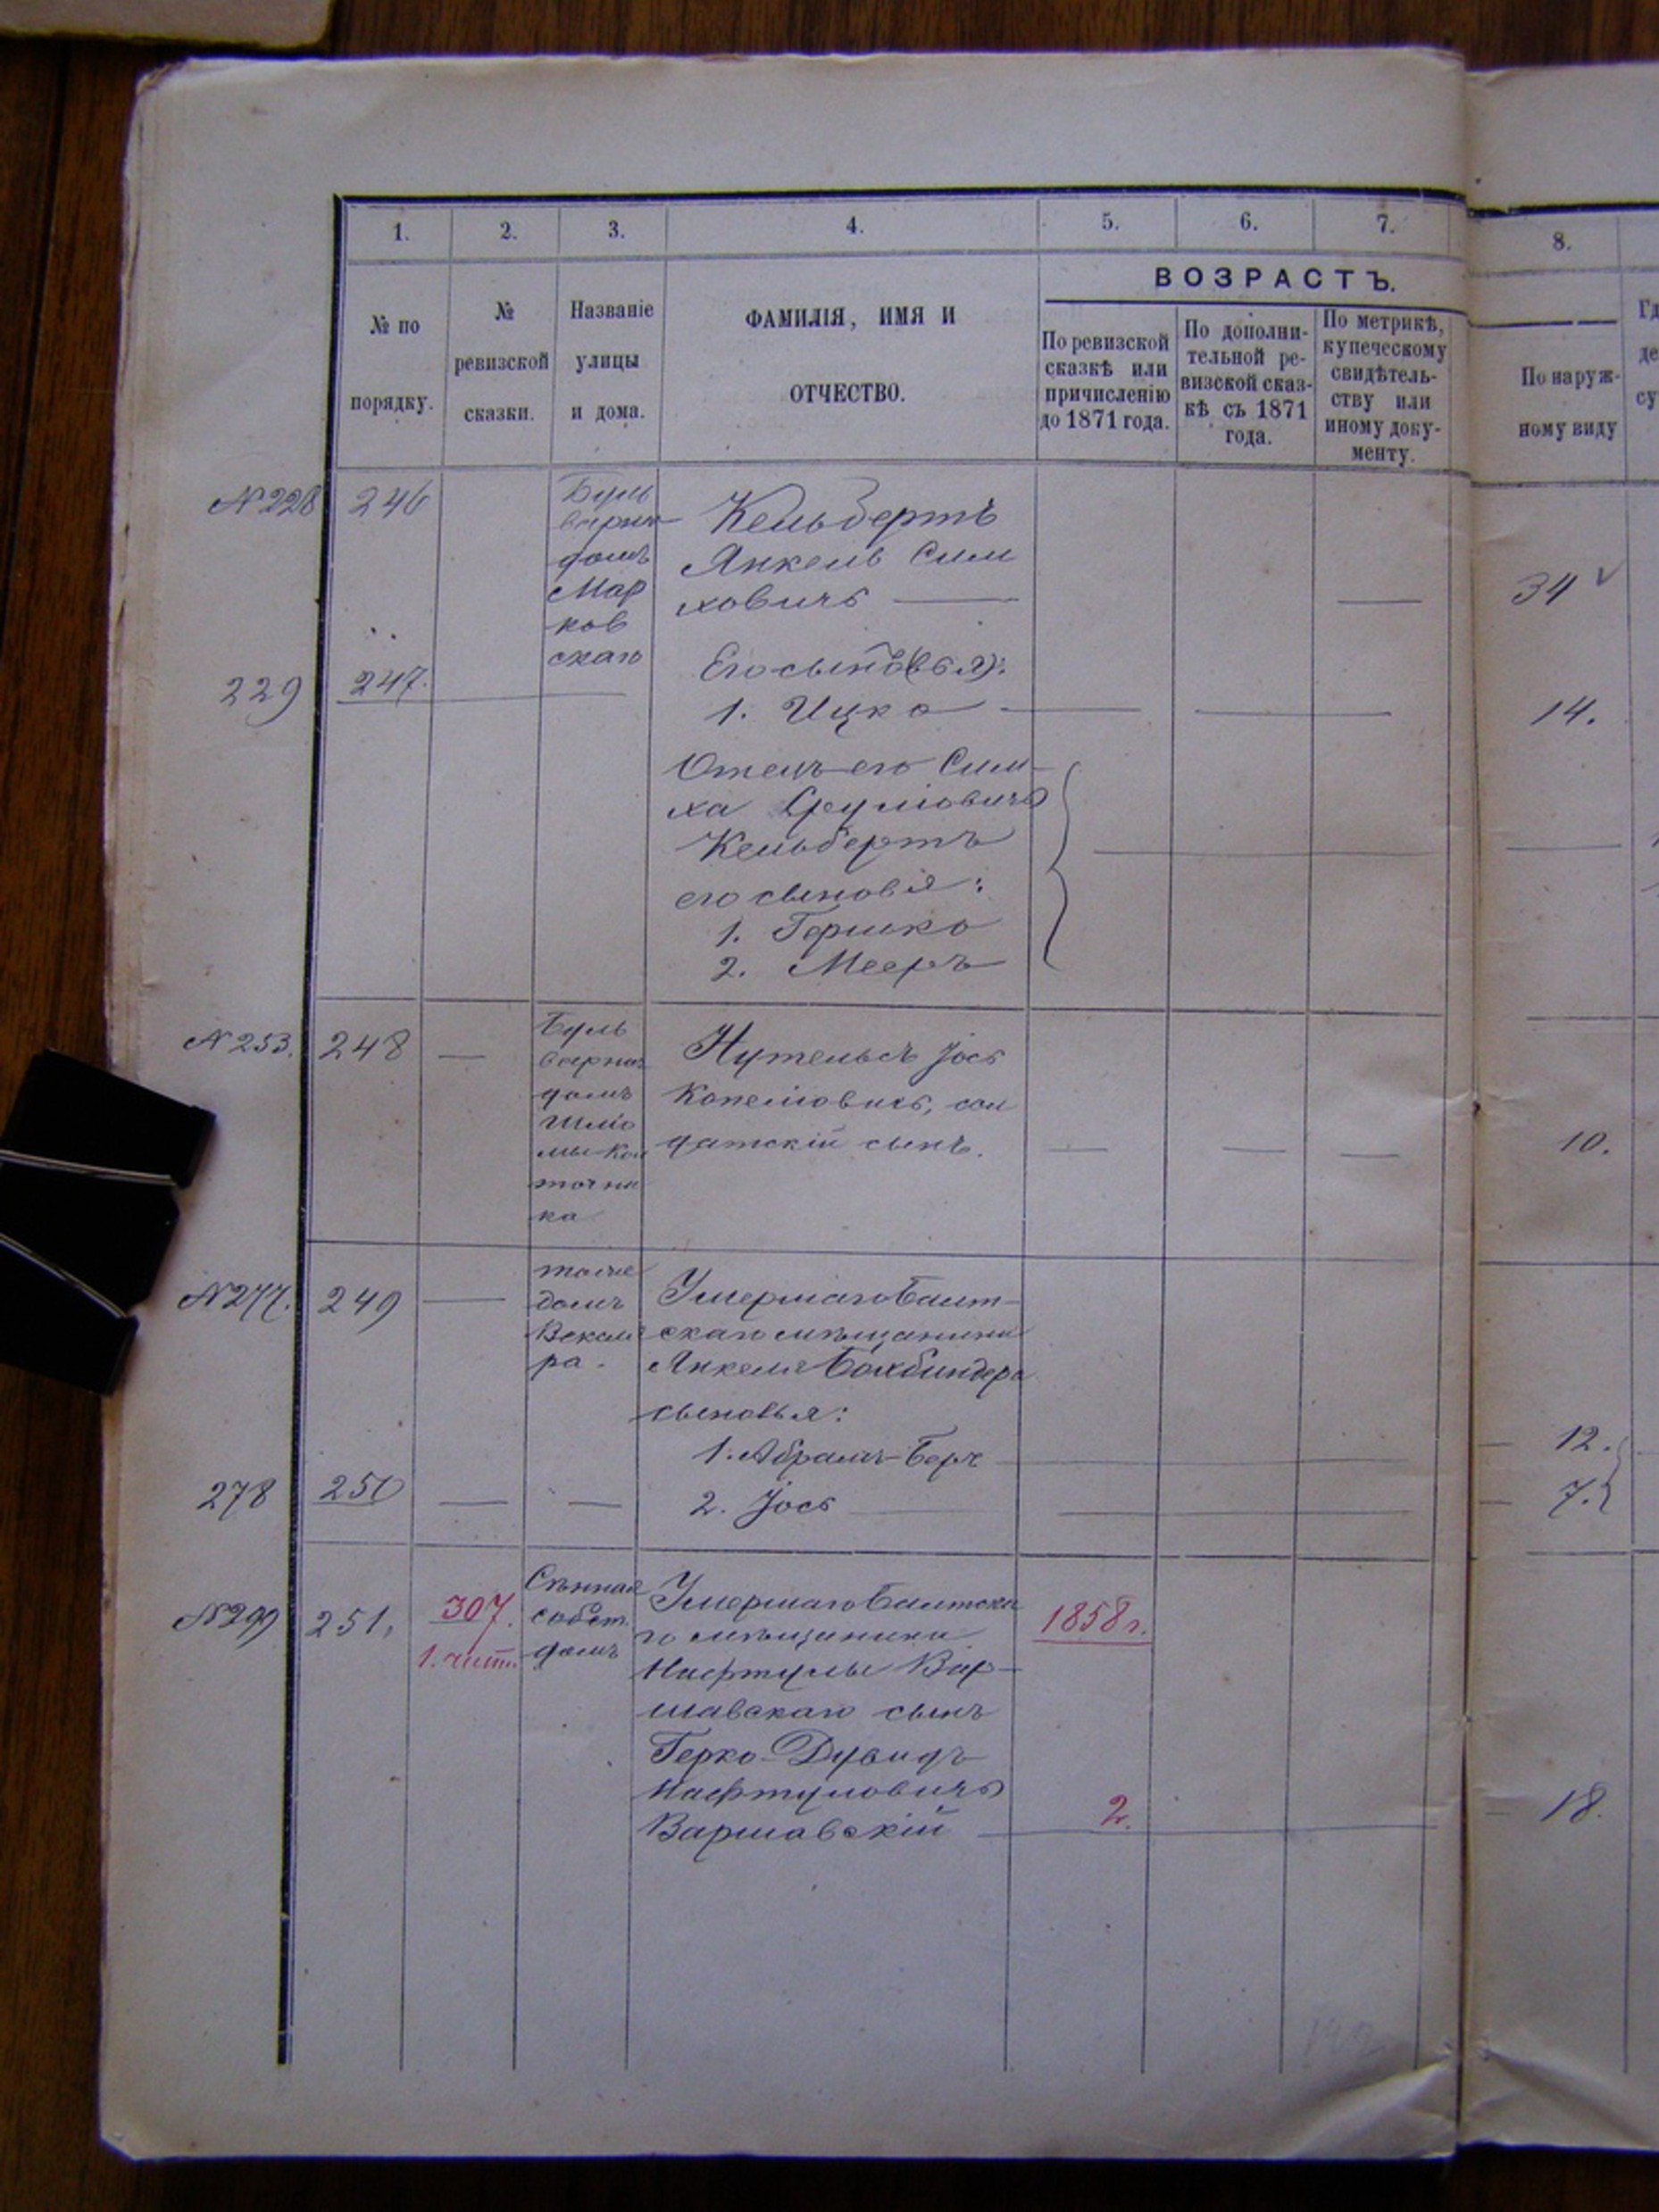 1. 2. 3. 4. 5. 6. 7. 8.
ВОЗРАСТЪ.
№ по
порядку.
№
ревизской
сказки.
Названіе
улицы
и дома.
ФАМИЛІЯ, ИМЯ И
ОТЧЕСТВО.
По ревизской
сказкѣ или
причисленію
до 1871 года.
По дополни-
тельной ре-
визской сказ-
кѣ съ 1871
года.
По метрикѣ,
купеческому
свидѣтель-
ству или
иному доку-
менту.
По наруж-
ному виду
Гд
де
су
№ 228 246
Буль
варная
домъ
Мар
ков
скаго
Кельбертъ
Янкель Сим
ховичъ —
34 ✓
229 247.
Его сынъ(овья):
1. Ицко
14.
Отецъ его Сим-
ха Сруліовичъ
Кельбертъ
его сыновія:
1. Гершко
2. Мееръ
№ 253. 248 —
Буль
варная
домъ
Шліо
мы Кол
точни
ка
Нутельсъ Іось
Копеліовичъ, сол
датскій сынъ.
— — — 10.
№ 277. 249 —
тоже
домъ
Векслe
ра.
Умершаго Балт-
скаго мѣщанина
Янкеля Бохбиндера
сыновья:
1. Абрамъ-Беръ
12.
278 250 — —
2. Іось
7.
№ 299 251.
307.
1. чит.
Сѣнная
собст.
домъ
Умершаго Балтска
го мѣщанина
Нафтулы Вар-
шавскаго сынъ
Герко-Дувидъ
Нафтуловичъ
Варшавскій
1858 г.
2.
18.